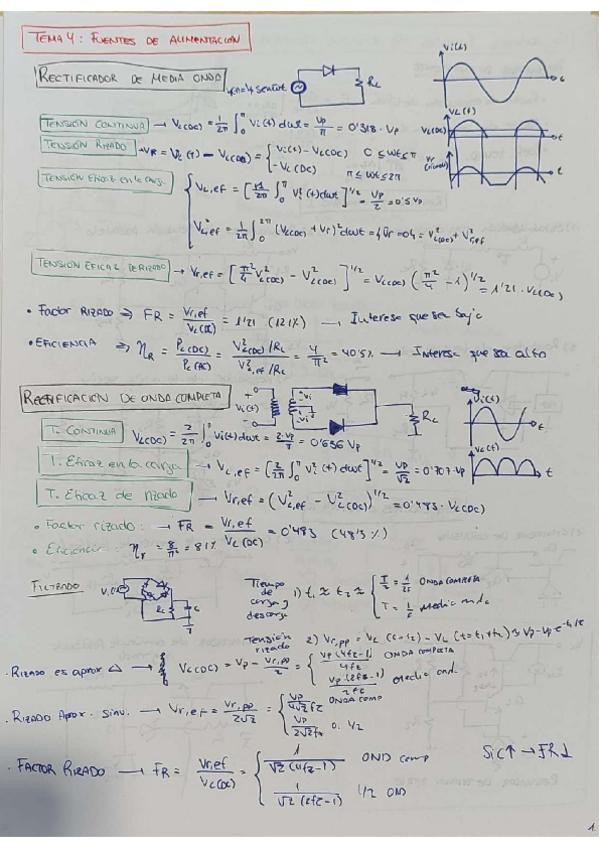 TEMA 4: FUENTES DE ALIMENTACIÓN
RECTIFICADOR DE MEDIA ONDA
RL
Vi(t)
t
VL(t)
VL(DC)
t
Vr
t
TENSIÓN CONTINUA → VL(DC) = 1/2π ∫₀^π Vi(t) dωt = Vp/π = 0'318 · Vp
TENSIÓN RIZADO → VR = VL(t) − VL(DC) = { Vi(t) − VL(DC) 0 ≤ ωt ≤ π
−VL(DC) π ≤ ωt ≤ 2π
TENSIÓN EFICAZ en la carga { VL,ef = [1/2π ∫₀^π Vi²(t) dωt]^1/2 = Vp/2 = 0'5 Vp
VL,ef² = 1/2π ∫₀^2π (VL(DC) + Vr)² dωt = = V²L(DC) + V²r,ef
TENSIÓN EFICAZ DE RIZADO → Vr,ef = [π²/4 V²L(DC) − V²L(DC)]^1/2 = VL(DC) (π²/4 − 1)^1/2 = 1'21 · VL(DC)
• Factor RIZADO ⇒ FR = Vr,ef / VL(DC) = 1'21 (121%) → Interesa que sea bajo
• EFICIENCIA ⇒ ηR = PL(DC) / PL(AC) = V²L(DC)/RL / V²L,ef/RL = 4/π² = 40'5% → Interesa que sea alto
RECTIFICACION DE ONDA COMPLETA
Vi(t)
Vi
Vi
RL
Vi(t)
t
VL(t)
t
T. CONTINUA VL(DC) = 2/2π ∫₀^π Vi(t) dωt = 2·Vp/π = 0'636 Vp
T. Eficaz en la carga → VL,ef = [2/2π ∫₀^π Vi²(t) dωt]^1/2 = Vp/√2 = 0'707 · Vp
T. Eficaz de rizado → Vr,ef = (V²L,ef − V²L(DC))^1/2 = 0'483 · VL(DC)
• Factor rizado: → FR = Vr,ef / VL(DC) = 0'483 (48'3 %)
• Eficiencia: ηr = 8/π² = 81%
FILTRADO
RL
C
Tiempo de carga y descarga 1) t₁ ≈ t₂ ≈ { T/2 = 1/2f ONDA COMPLETA
T = 1/f Media onda
Tensión rizado 2) Vr,pp = VL (t=t2) − VL (t=t1+t2) ≈ Vp − Vp
• RIZADO es aprox △ → VL(DC) = Vp − Vr,pp/2 = { Vp (4fz−1)/4fz ONDA COMPLETA
Vp (2fz−1)/2fz media ond.
• RIZADO Aprox. sinu. → Vr,ef = Vr,pp / 2√2 = { Vp / 4√2fz ONDA COMP
Vp / 2√2fz 0. 1/2
• FACTOR RIZADO → FR = Vr,ef / VL(DC) = { 1 / √2 (4fz−1) OND comp
1 / √2 (2fz−1) 1/2 OND
Si C↑ → FR↓
1.